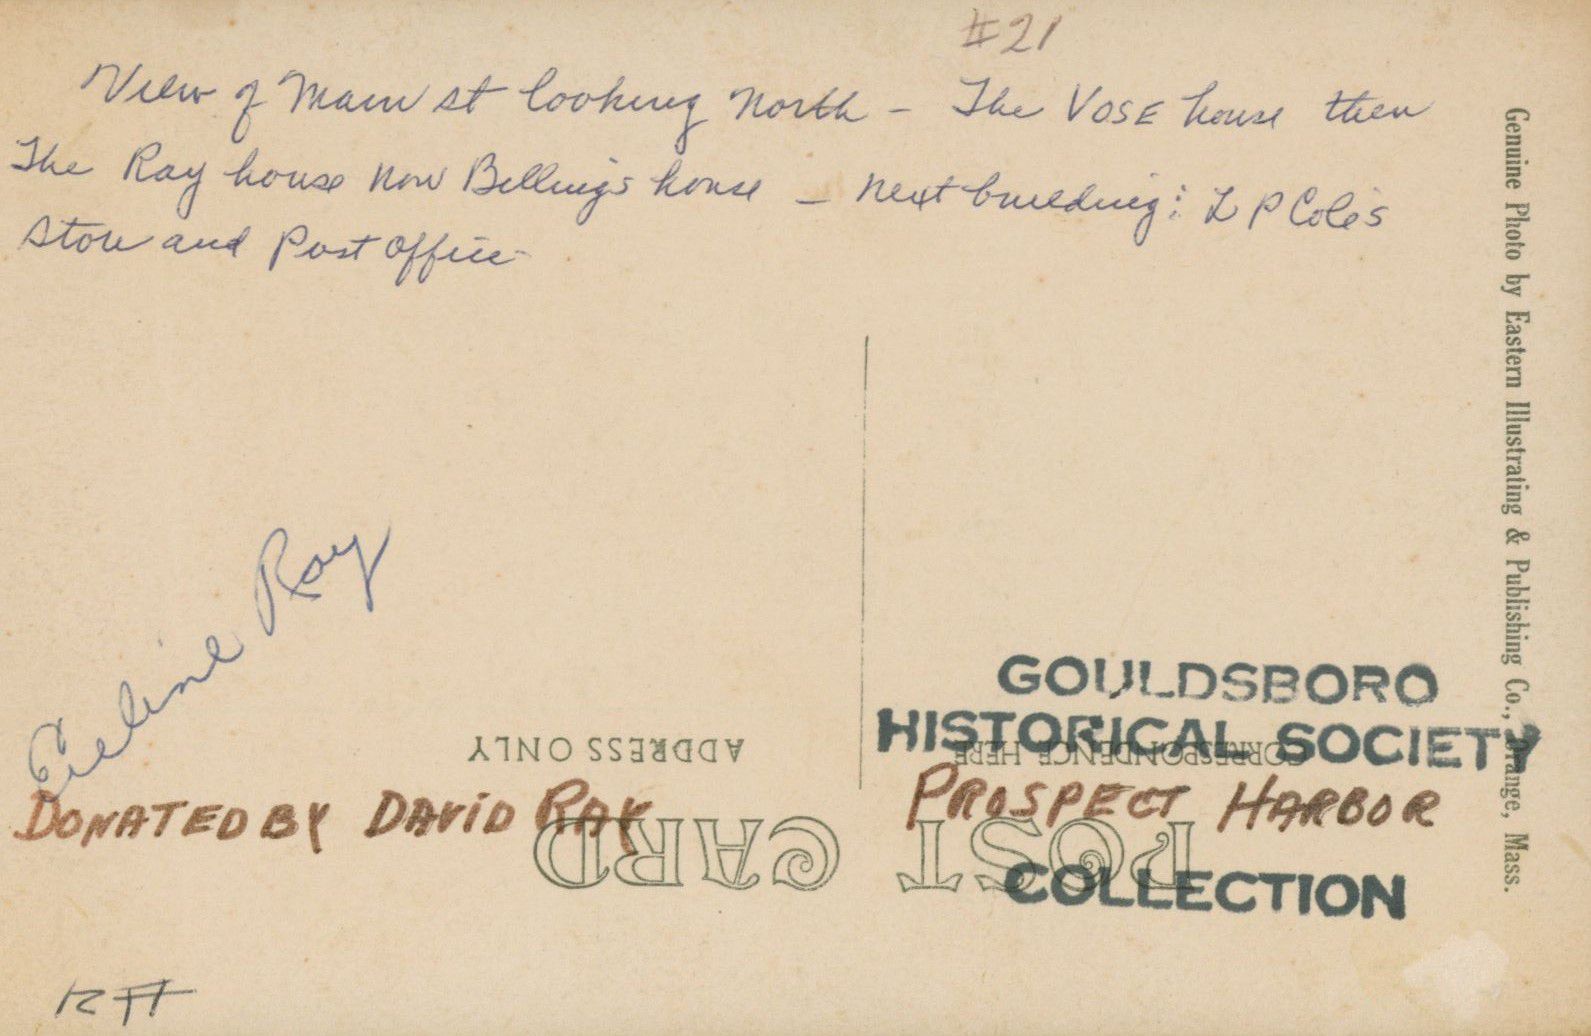 #21
View of Main st looking North - The VOSE house then
The Ray house now Billings house - next building: L P Cole's
store and Post Office
Genuine Photo by Eastern Illustrating & Publishing Co., Orange, Mass.
Ray
GOULDSBORO
HISTORICAL SOCIETY
PROSPECT HARBOR
COLLECTION
DONATED BY DAVID RAY
POST CARD
CORRESPONDENCE HERE
ADDRESS ONLY